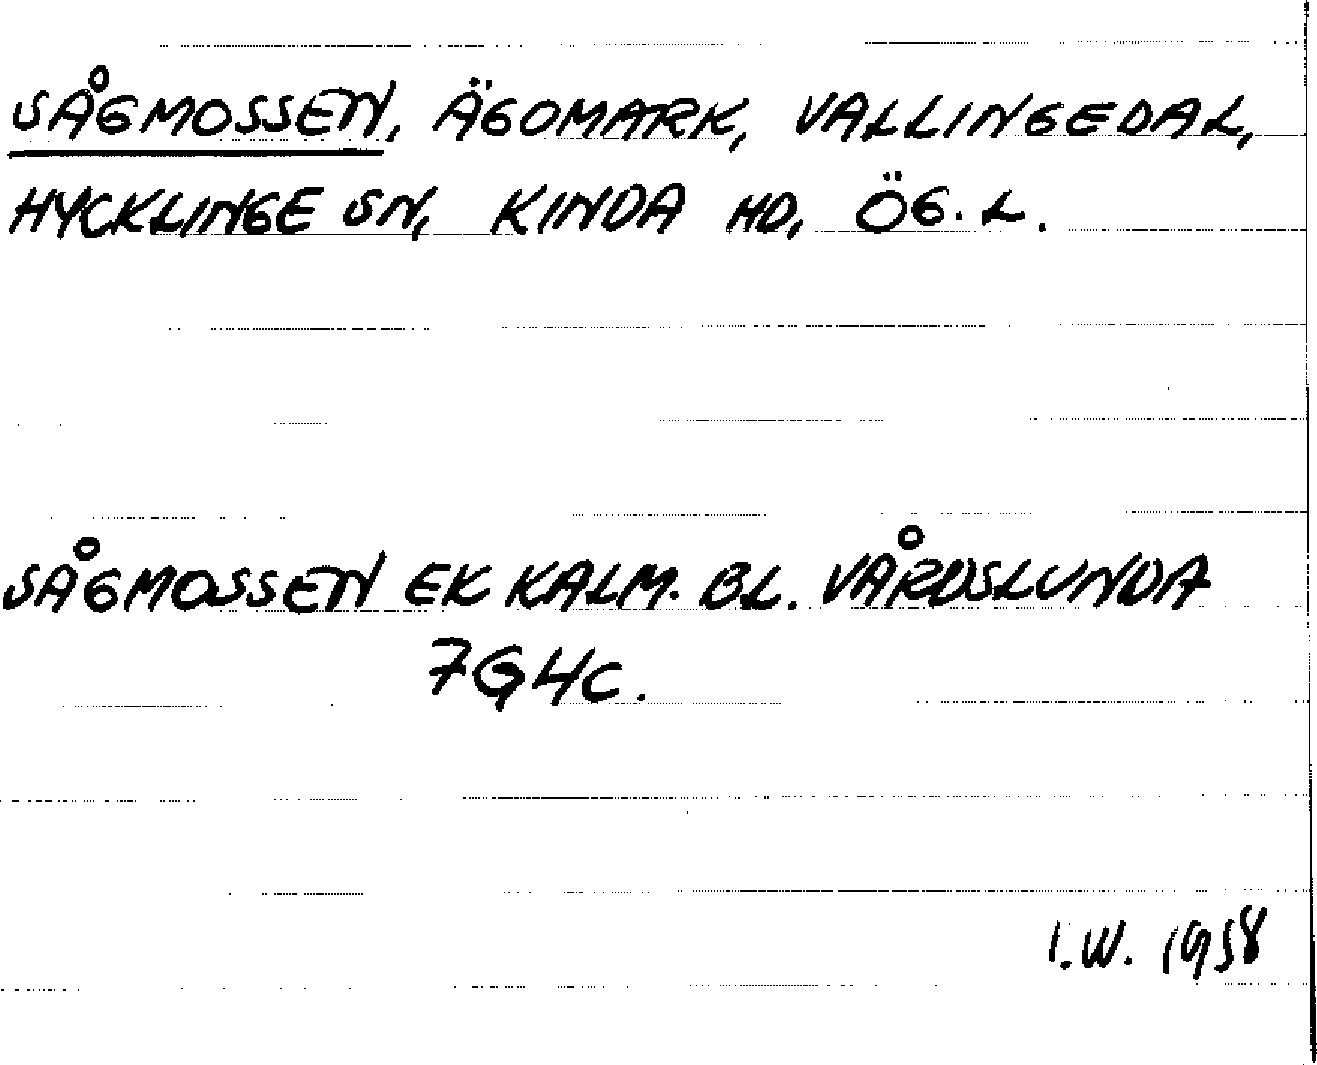 SÅGMOSSEN, ÄGOMARK, VALLINGEDAL,
HYCKLINGE SN, KINDA HD, ÖG. L.
SÅGMOSSEN EK KALM. BL. VÅRDSLUNDA
7G4c.
I.W. 1958